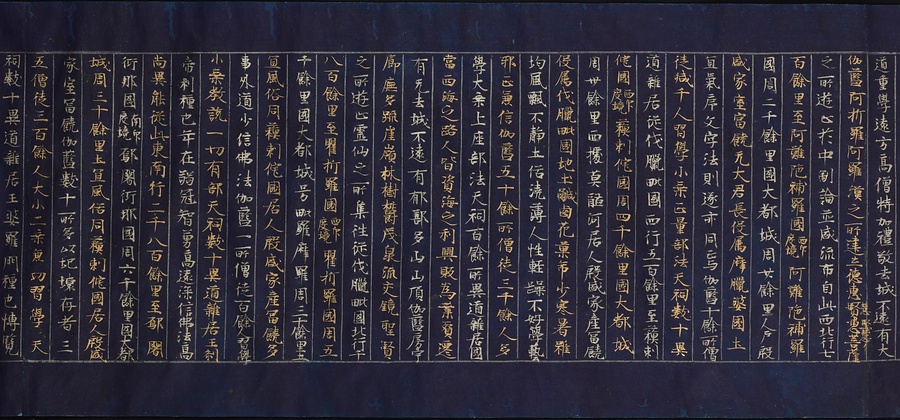 道重學遠方高僧特加禮敬去城不遠有大
伽藍阿折羅阿羅漢之所建立德慧堅慧菩薩
之所遊止於中制論並盛流布自此西北行七
百餘里至阿難陀補羅國西印度境阿難陀補羅
國周二千餘里國大都城周廿餘里人戶殷
盛家室富饒无大君長役屬摩臘婆國土
宜氣序文字法則遂亦同焉伽藍十餘所僧
徒減千人習學小乘正量部法天祠數十異
道雜居從伐臘毗國西行五百餘里至蘇剌
侘國西印度境蘇剌侘國周四千餘里國大都城
周卅餘里西據莫醯河居人殷盛家產富饒
役屬伐臘毗國地土鹹鹵花菓希少寒暑雖
均風飄不靜土俗澆薄人性輕躁不好學藝
邪正兼信伽藍五十餘所僧徒三千餘人多
學大乘上座部法天祠百餘所異道雜居國
當西海之路人皆資海之利興販為業貿遷
有无去城不遠有郁鄯多山山頂伽藍房宇
廊廡多疏崖嶺林樹欝茂泉流交鏡聖賢
之所遊止靈仙之所集往從伐臘毗國北行千
八百餘里至瞿折羅國西印度境瞿折羅國周五
千餘里國大都城号毗羅摩羅周三十餘里土
宜風俗同蘇剌侘國居人殷盛家產富饒多
事外道少信佛法伽藍一所僧徒百餘人習學
小乘教說一切有部天祠數十異道雜居王剎
帝利種也年在弱冠智勇高遠深信佛法高
尚異能從此東南行二千八百餘里至鄔闍
衍那國南印度境鄔闍衍那國周六千餘里國大都
城周三十餘里土宜風俗同蘇剌侘國居人殷盛
家室富饒伽藍數十所多以圮壞存者三
五僧徒三百餘人大小二乘兼功習學天
祠數十異道雜居王婆羅門種也博覽